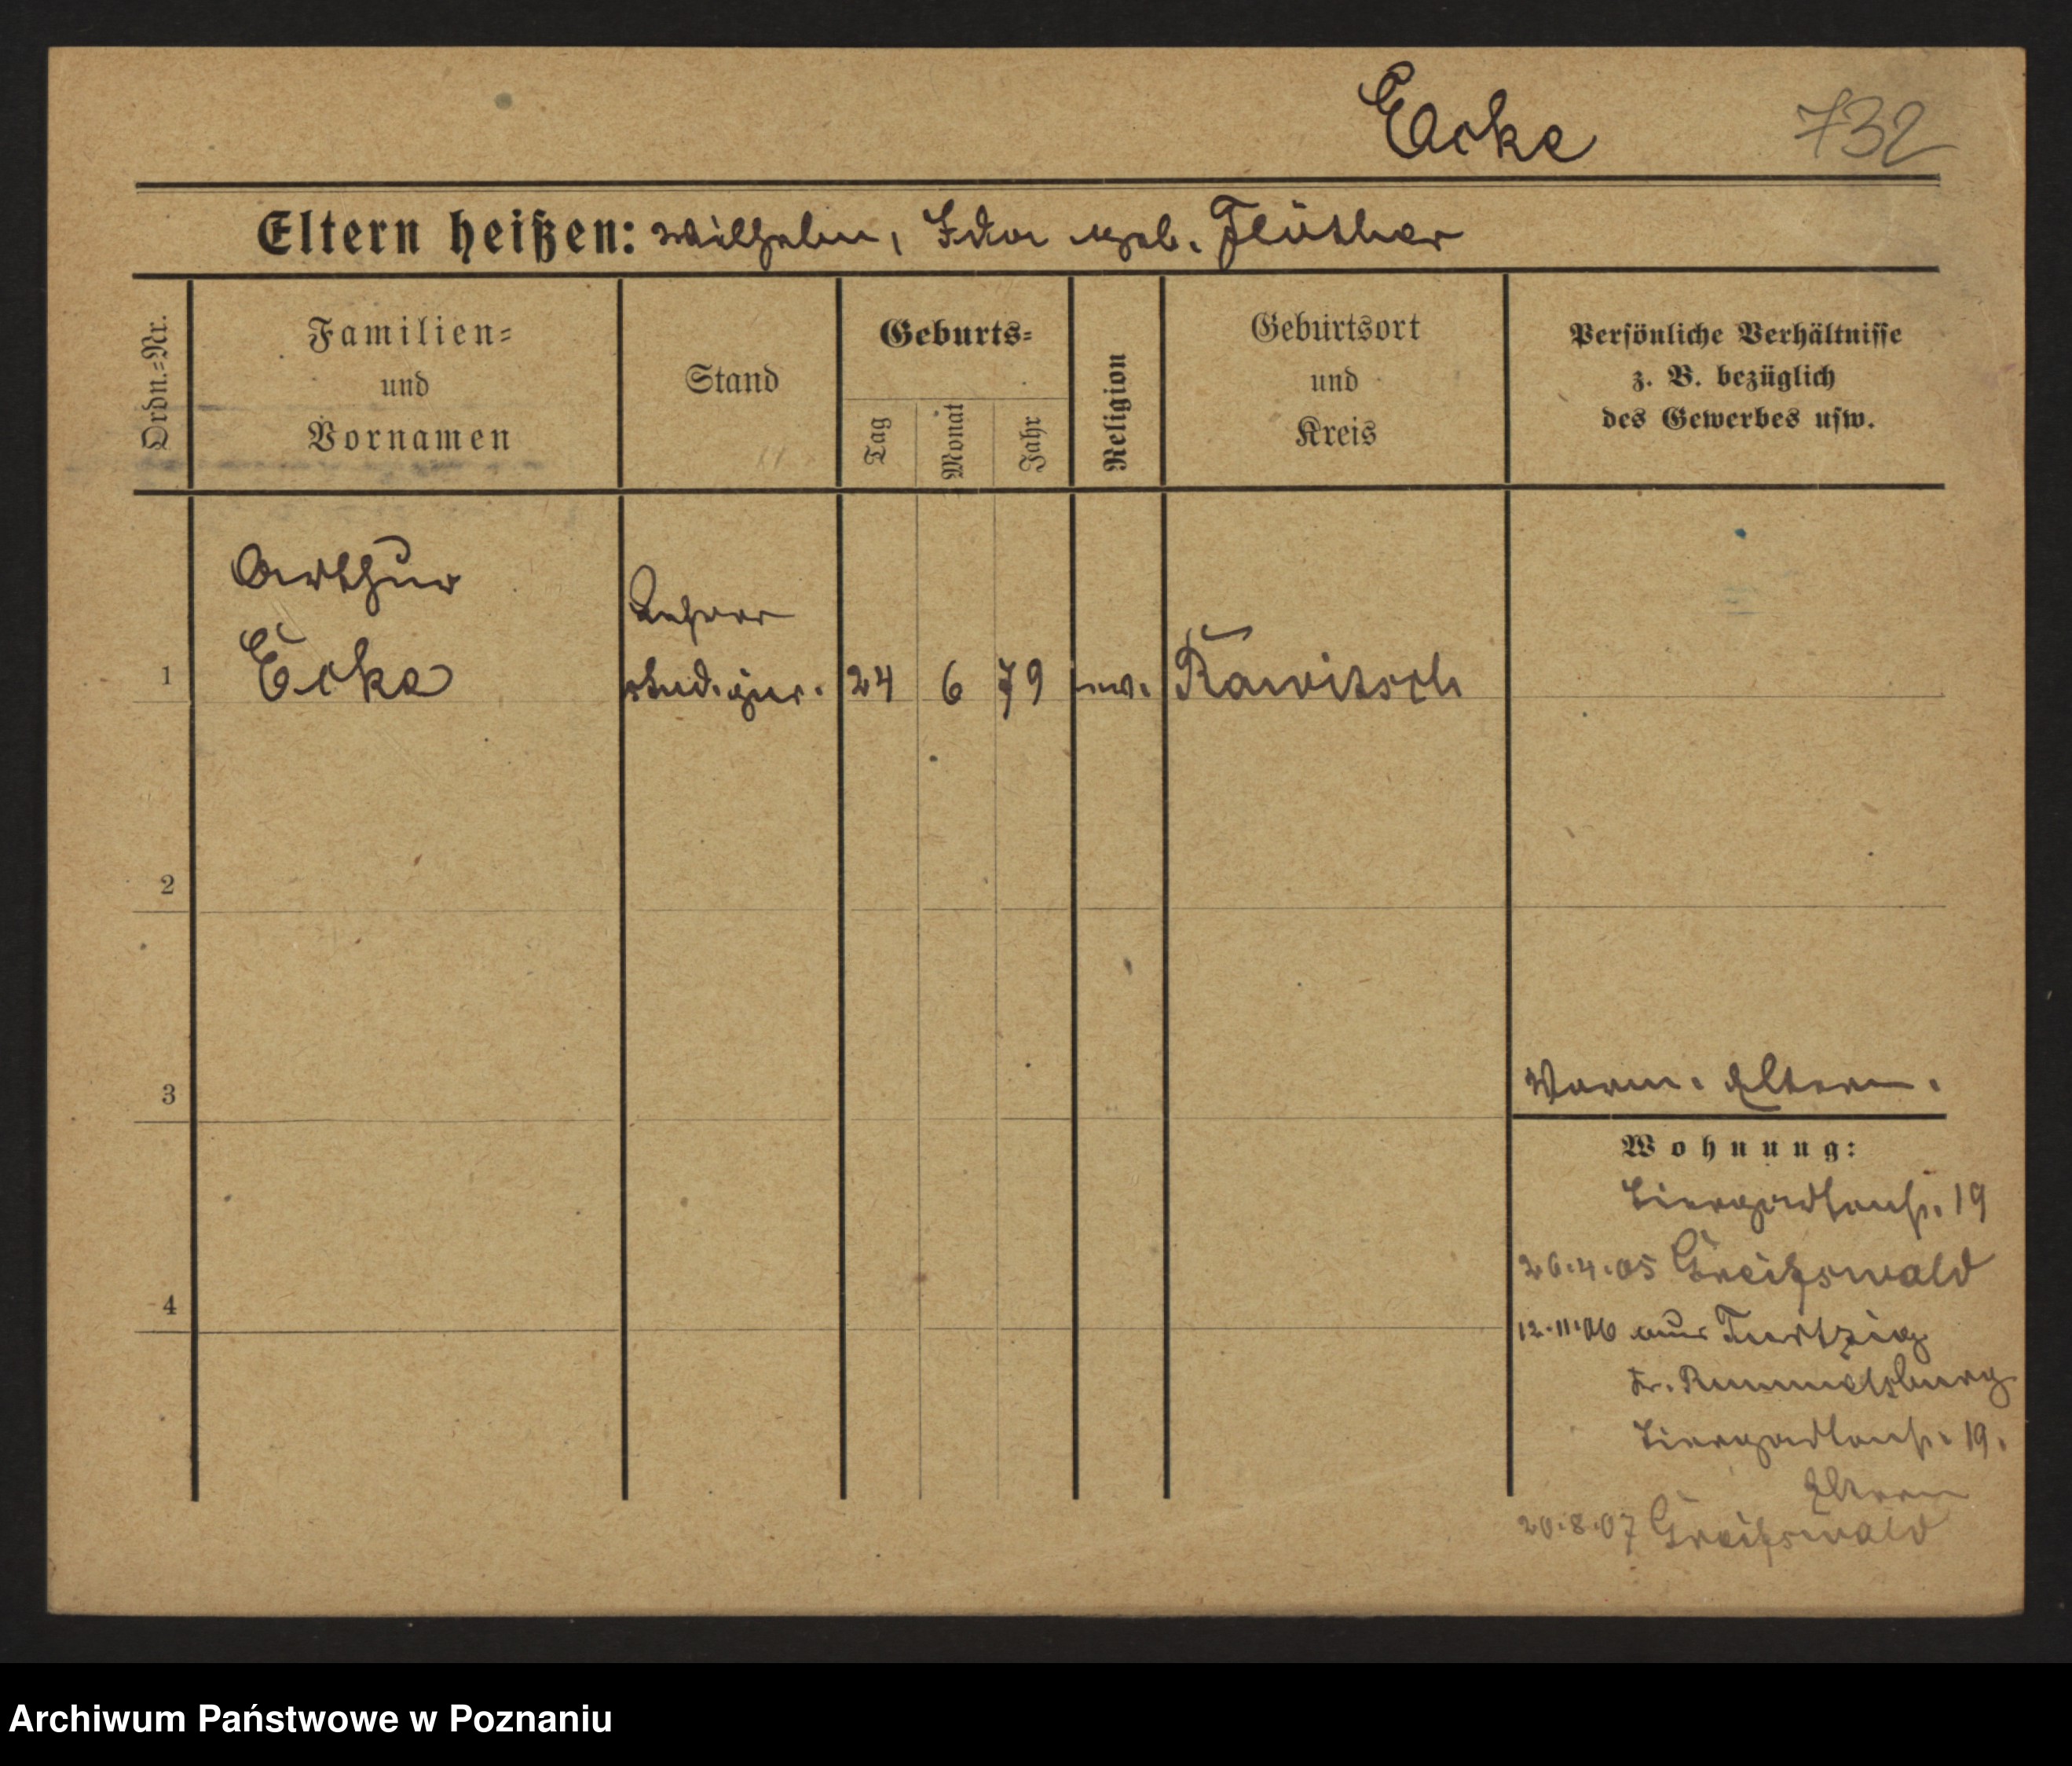 Ecke 732
Eltern heißen: Wilhelm, Ida geb. Flöther
Ordn.-Nr.
Familien-
und
Vornamen
Stand
Geburts-
Tag
Monat
Jahr
Religion
Geburtsort
und
Kreis
Persönliche Verhältnisse
z. B. bezüglich
des Gewerbes usw.
Arthur
Ecke
Lehrer
stud. jur.
1
24 6 79 ev. Rawitsch
2
3
4
Verm. Eltern.
Wohnung:
Tiergartenstr. 19
26.4.05 Greifswald
12.11.06 aus Turtzig
Kr. Rummelsburg
Tiergartenstr. 19.
Eltern
20.8.07 Greifswald
Archiwum Państwowe w Poznaniu